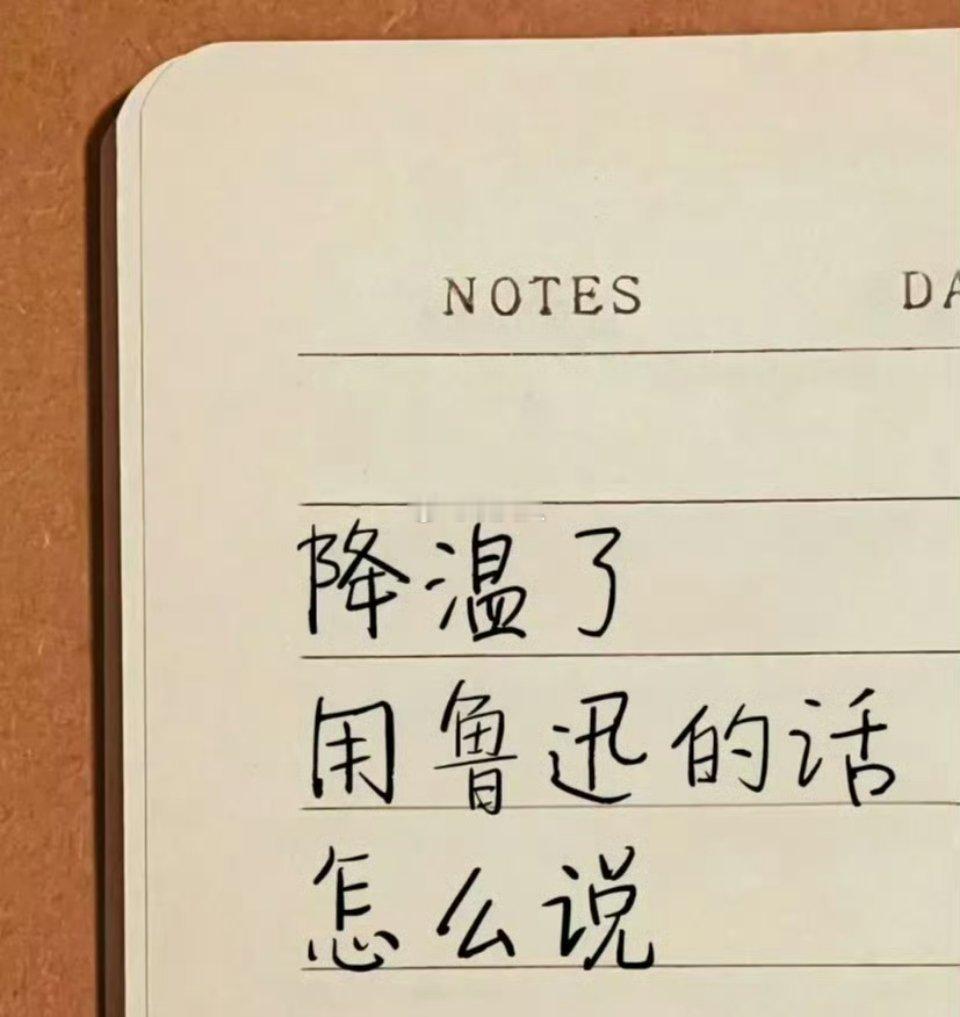 NOTES
降温了
用鲁迅的话
怎么说